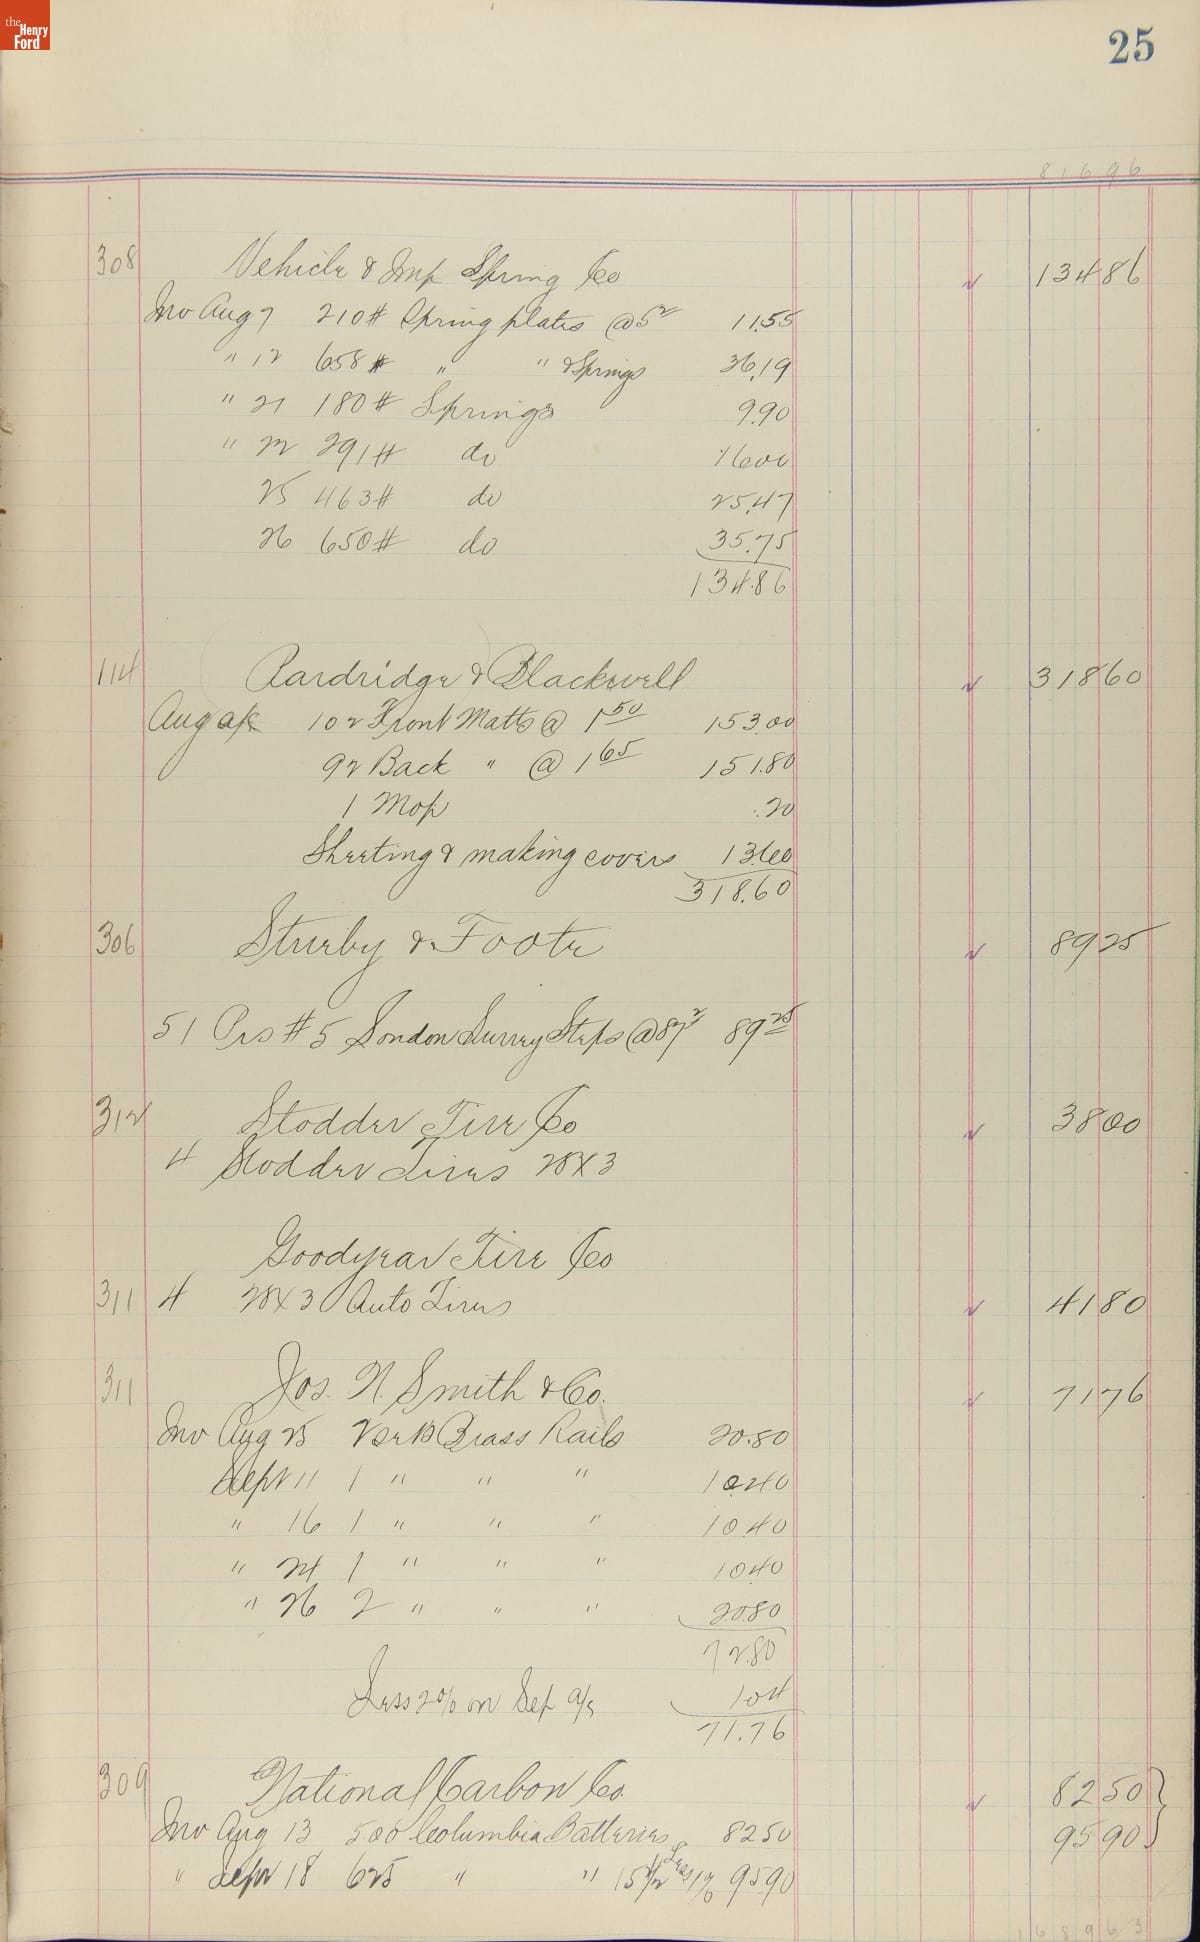 the Henry Ford
25
81696
308 Vehicle & Imp Spring Co 134 86
Inv Aug 7 210# Spring plates @ 5½ 11.55
" 12 658# " " & Springs 36.19
" 21 180# Springs 9.90
" 22 291# do 16 00
25 463# do 25.47
26 650# do 35.75
134.86
114 Pardridge & Blackwell 318 60
Aug a/c 102 Front Matts @ 1 50 153.00
92 Back " @ 1 65 151.80
1 Mop .20
Sheeting & making covers 13.60
318.60
306 & Foote 89 25
51 Prs #5 London Surrey Steps @ 87½ 89 25
312 Stodder Tire Co 38 00
4 Stodder Tires 28 X 3
Goodyear Tire Co
311 4 28 X 3 Auto Tires 41 80
311 Jos. N. Smith & Co. 71 76
Inv Aug 25 2 Brass Rails 20.80
Sept 11 1 " " " 10 40
" 16 1 " " " 10 40
" 24 1 " " " 10.40
" 26 2 " " " 20.80
72.80
Less 2% on Sep a/c 1 04
71.76
309 National Carbon Co. 82 50
Inv Aug 13 500 Columbia Batteries 82 50 95 90
" Sept 18 625 " " 15½ Less 1% 95 90
168963